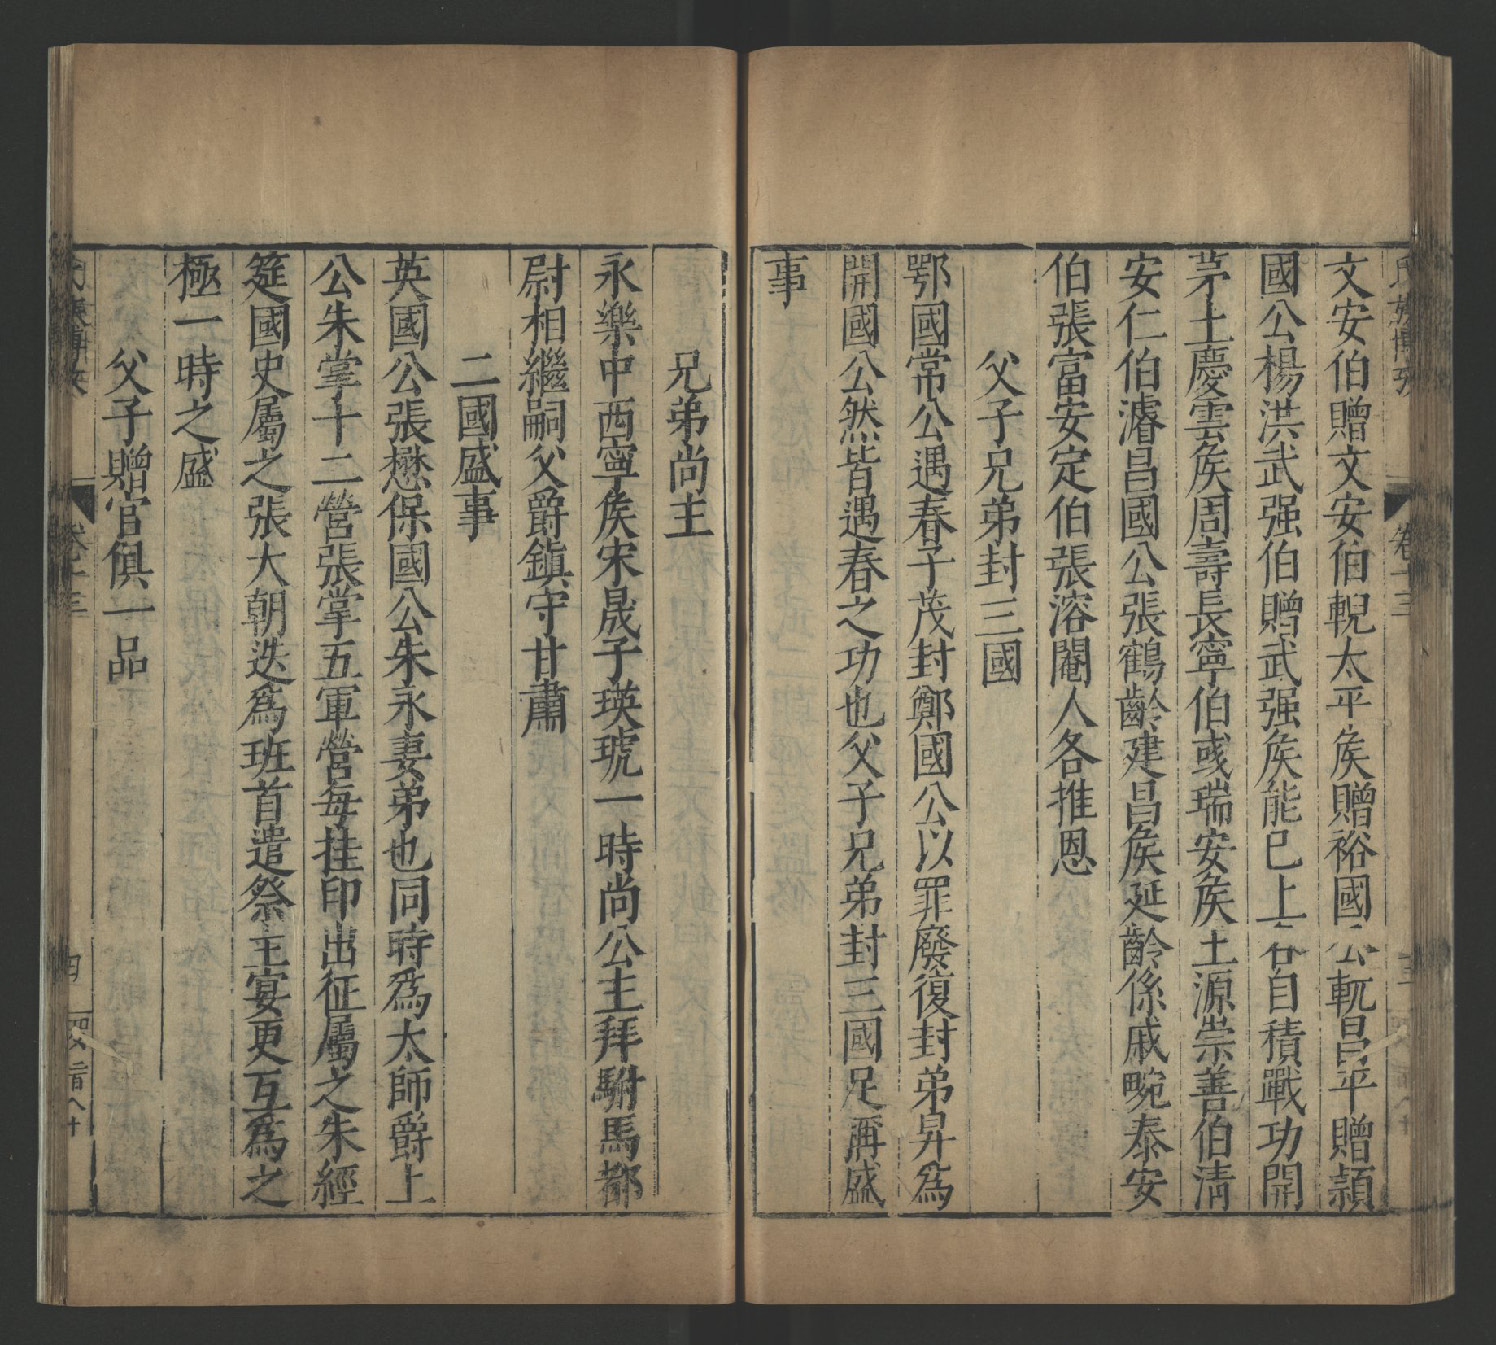 文安伯贈文安伯輗太平侯贈裕國公軏昌平贈潁
國公楊洪武强伯贈武强侯能已上各自積戰功開
茅土慶雲侯周壽長寧伯彧瑞安侯王源崇善伯清
安仁伯濬昌國公張鶴齡建昌侯延齡係戚畹泰安
伯張富安定伯張溶閹人各推恩
父子兄弟封三國
鄂國常公遇春子茂封鄭國公以罪廢復封弟昇為
開國公然皆遇春之功也父子兄弟封三國足稱盛
事
兄弟尚主
永樂中西寧侯宋晟子瑛琥一時尚公主拜駙馬都
尉相繼嗣父爵鎮守甘肅
二國盛事
英國公張懋保國公朱永永妻弟也同時為太師爵上
公朱掌十二營張掌五軍營每挂印出征屬之朱經
筵國史屬之張大朝迭為班首遣祭主宴更互為之
極一時之盛
父子贈官俱一品
卷十三